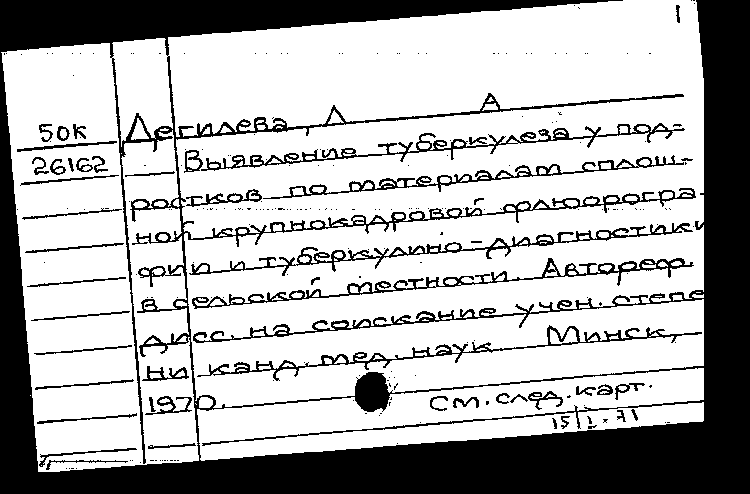 1
50К Дегилева, Л А
26162 Выявление туберкулеза у под=
ростков по материалам сплош-
ной крупнокадровой флюорогра-
фии и туберкулино=диагностики
в сельской местности. Автореф.
дисс. на соискание учен. степе
ни канд. мед. наук. Минск,
1970.
См. след. карт.